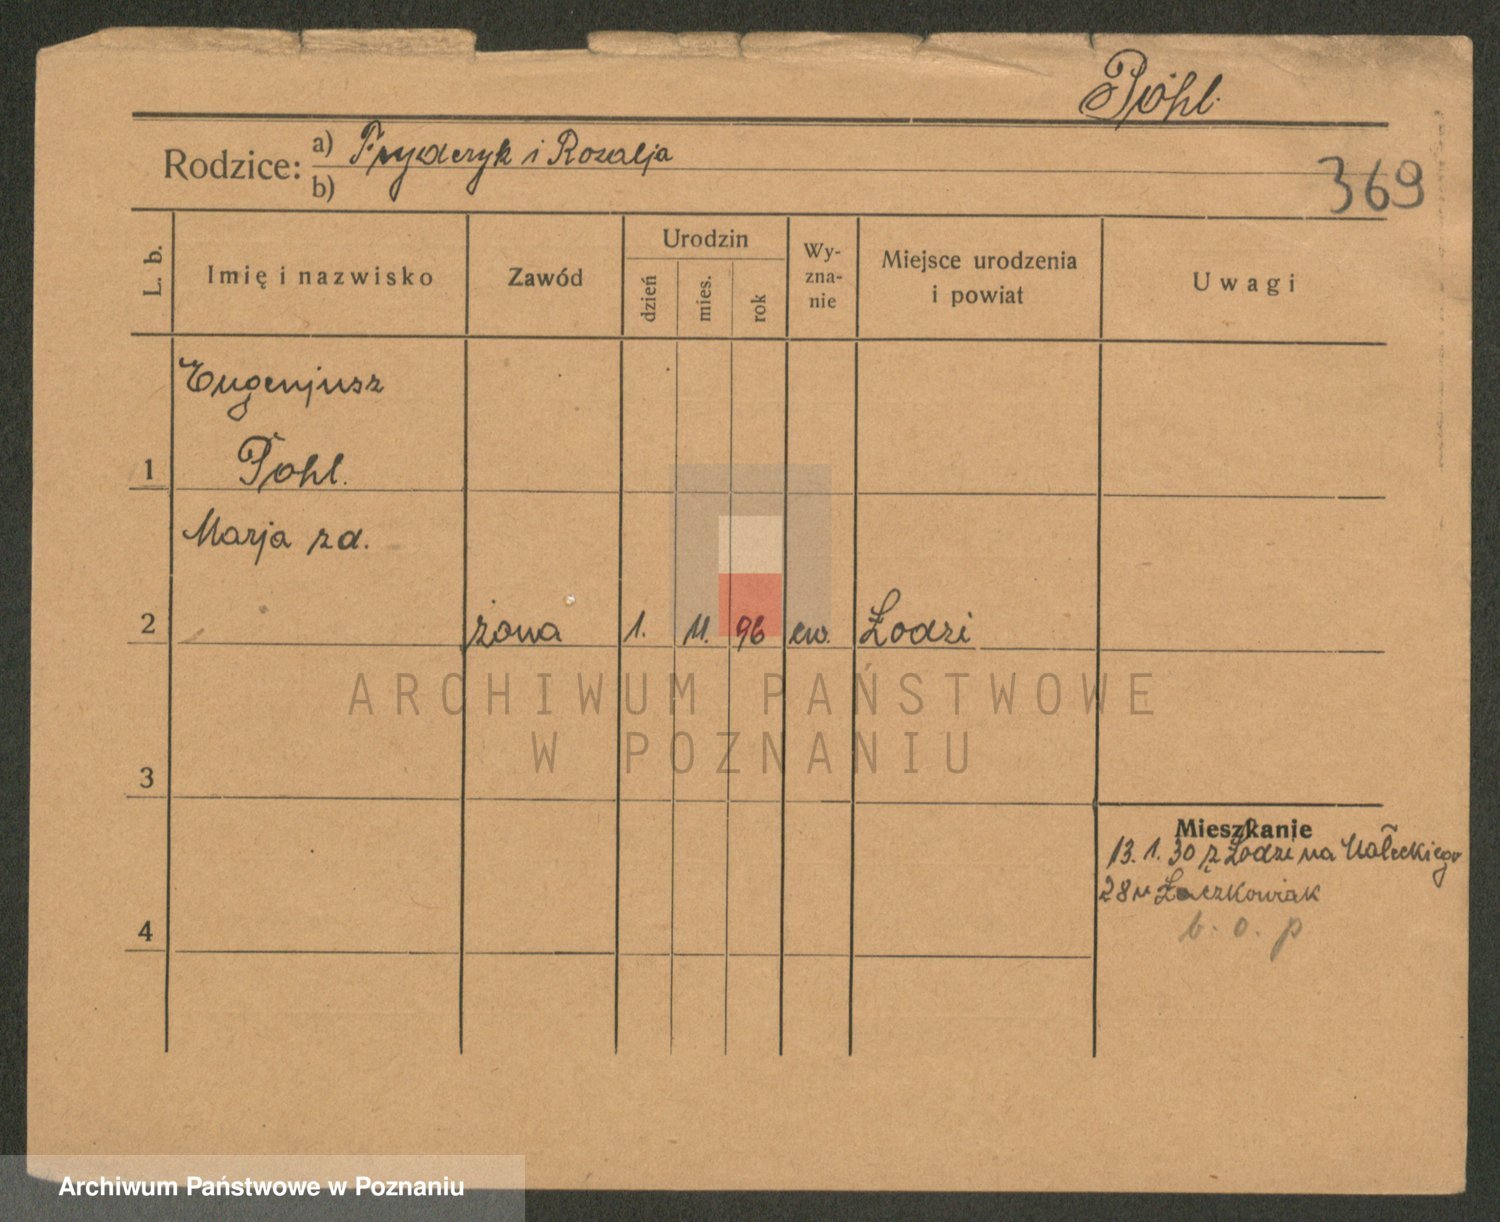 Pohl.
Rodzice: a) Fryderyk i Rozalja
b)
369
L. b.
Imię i nazwisko
Zawód
Urodzin
dzień
mies.
rok
Wy-
zna-
nie
Miejsce urodzenia
i powiat
Uwagi
Eugenjusz
1 Pohl.
Marja zd.
2 żona 1. 11. 96 ew. Łodzi
ARCHIWUM PAŃSTWOWE
W POZNANIU
3
Mieszkanie
13. 1. 30 z Łodzi na Małeckiego
28 u Łaczkowiak
b. o. p
4
Archiwum Państwowe w Poznaniu